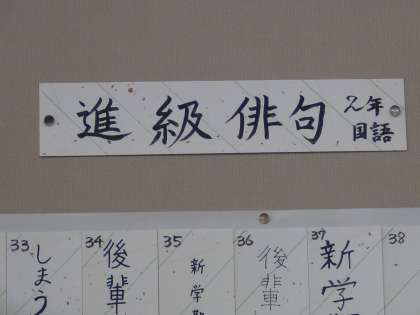 進級俳句
２年
国語
33 しまう
34 後輩
35 新学期
36 後輩
37 新学
38